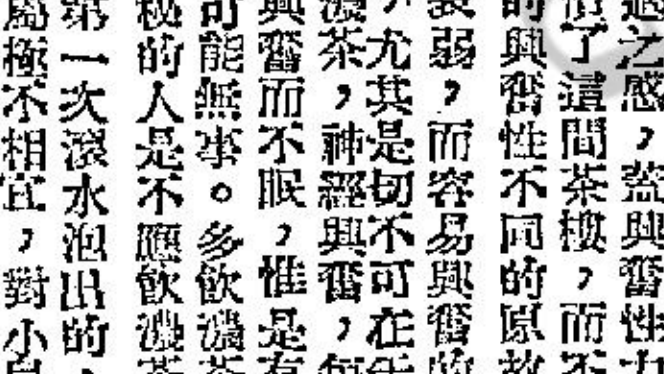 之感，蓋興奮性
慣了這間茶樓，而不
的興奮性不同的原故
衰弱，而容易興奮的
，尤其是切不可在
濃茶，神經興奮，
興奮而不眠，惟是有
可能無事。多飲濃茶
秘的人是不應飲濃茶
第一次滾水泡出的，
屬極不相宜，對小